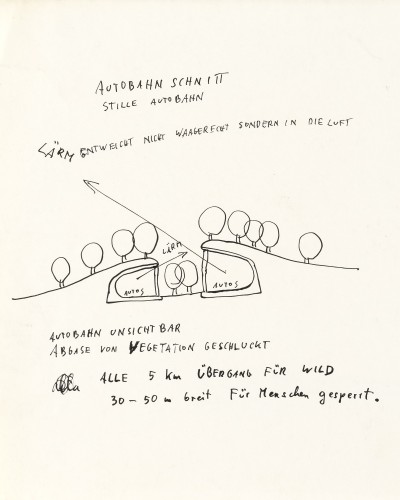 AUTOBAHN SCHNITT
STILLE AUTOBAHN
LÄRM ENTWEICHT NICHT WAAGERECHT SONDERN IN DIE LUFT
LÄRM
AUTOS
AUTOS
AUTOBAHN UNSICHTBAR
ABGASE VON VEGETATION GESCHLUCKT
ALLE 5 Km ÜBERGANG FÜR WILD
30-50 m breit Für Menschen gesperrt.